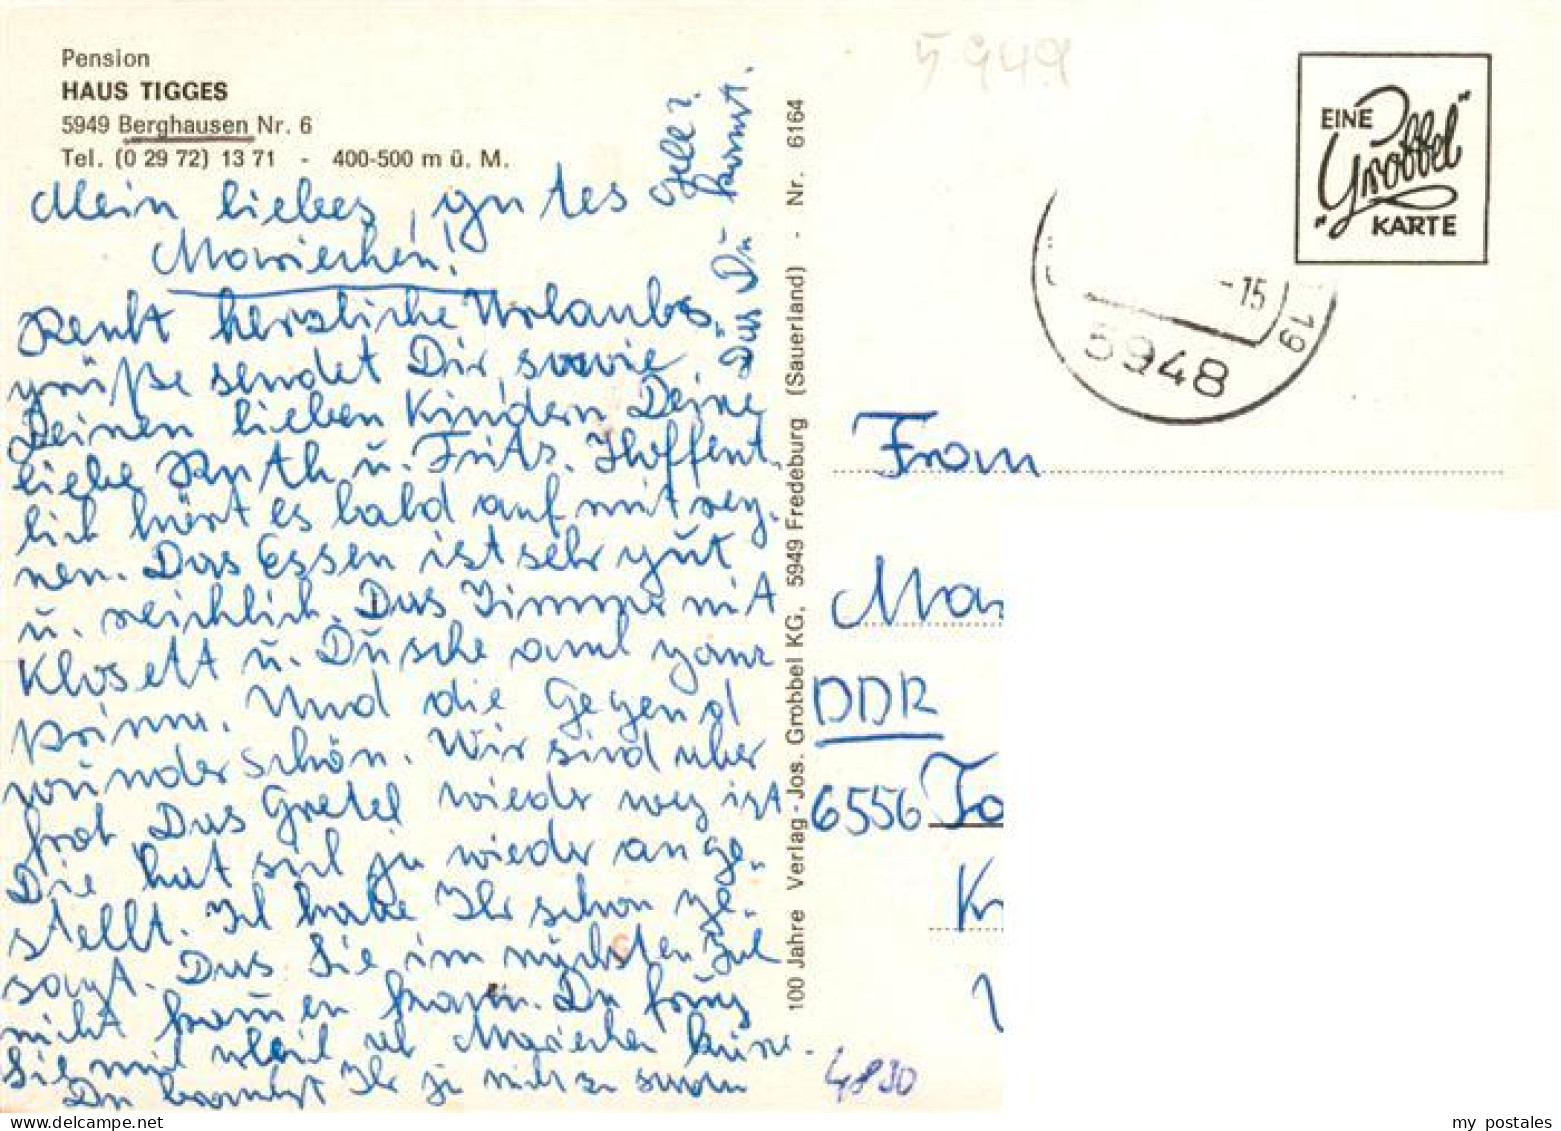 Pension
HAUS TIGGES
5949 Berghausen Nr. 6
Tel. (0 29 72) 13 71 - 400-500 m ü. M.
Mein liebes, gutes
Mariechen!
Recht herzliche Urlaubs,
grüße sendet Dir, sowie
Deinen lieben Kindern Deine
liebe Ruth u. Fritz. Hoffent,
lich hört es bald auf mit reg,
nen. Das Essen ist sehr gut
u. reichlich. Das Zimmer mit
Klosett u. Dusche auch ganz
prima. Und die Gegend
wunderschön. Wir sind aber
froh, Das Gretel wieder weg ist
Die hat sich ja wieder ange-
stellt. Ich habe Ihr schon ge-
sagt. Das Sie im nächsten Jul
nicht kann. Du
Sie mich Mariechen
Du brauchst Ihr ja nicht zu
Das Du kommst.
Gell?
100 Jahre Verlag - Jos. Grobbel KG, 5949 Fredeburg (Sauerland) - Nr. 6164
5949
EINE
"Grobbel"
KARTE
-15
19
5948
Frau
Mar
DDR
6556
K
4830
my postales